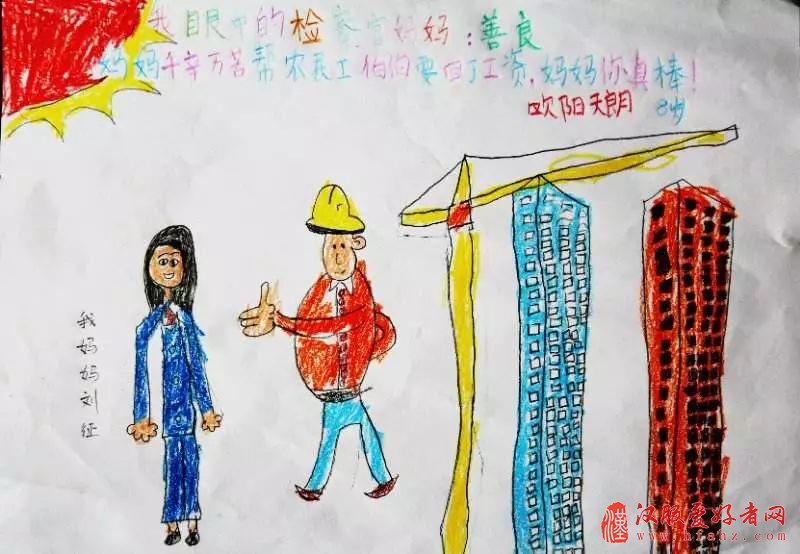 我眼中的检察官妈妈：善良
妈妈千辛万苦帮农民工伯伯要回了工资，妈妈你真棒！
欧阳天朗 8岁
我妈妈刘征
汉服爱好者网
www.hfahz.com